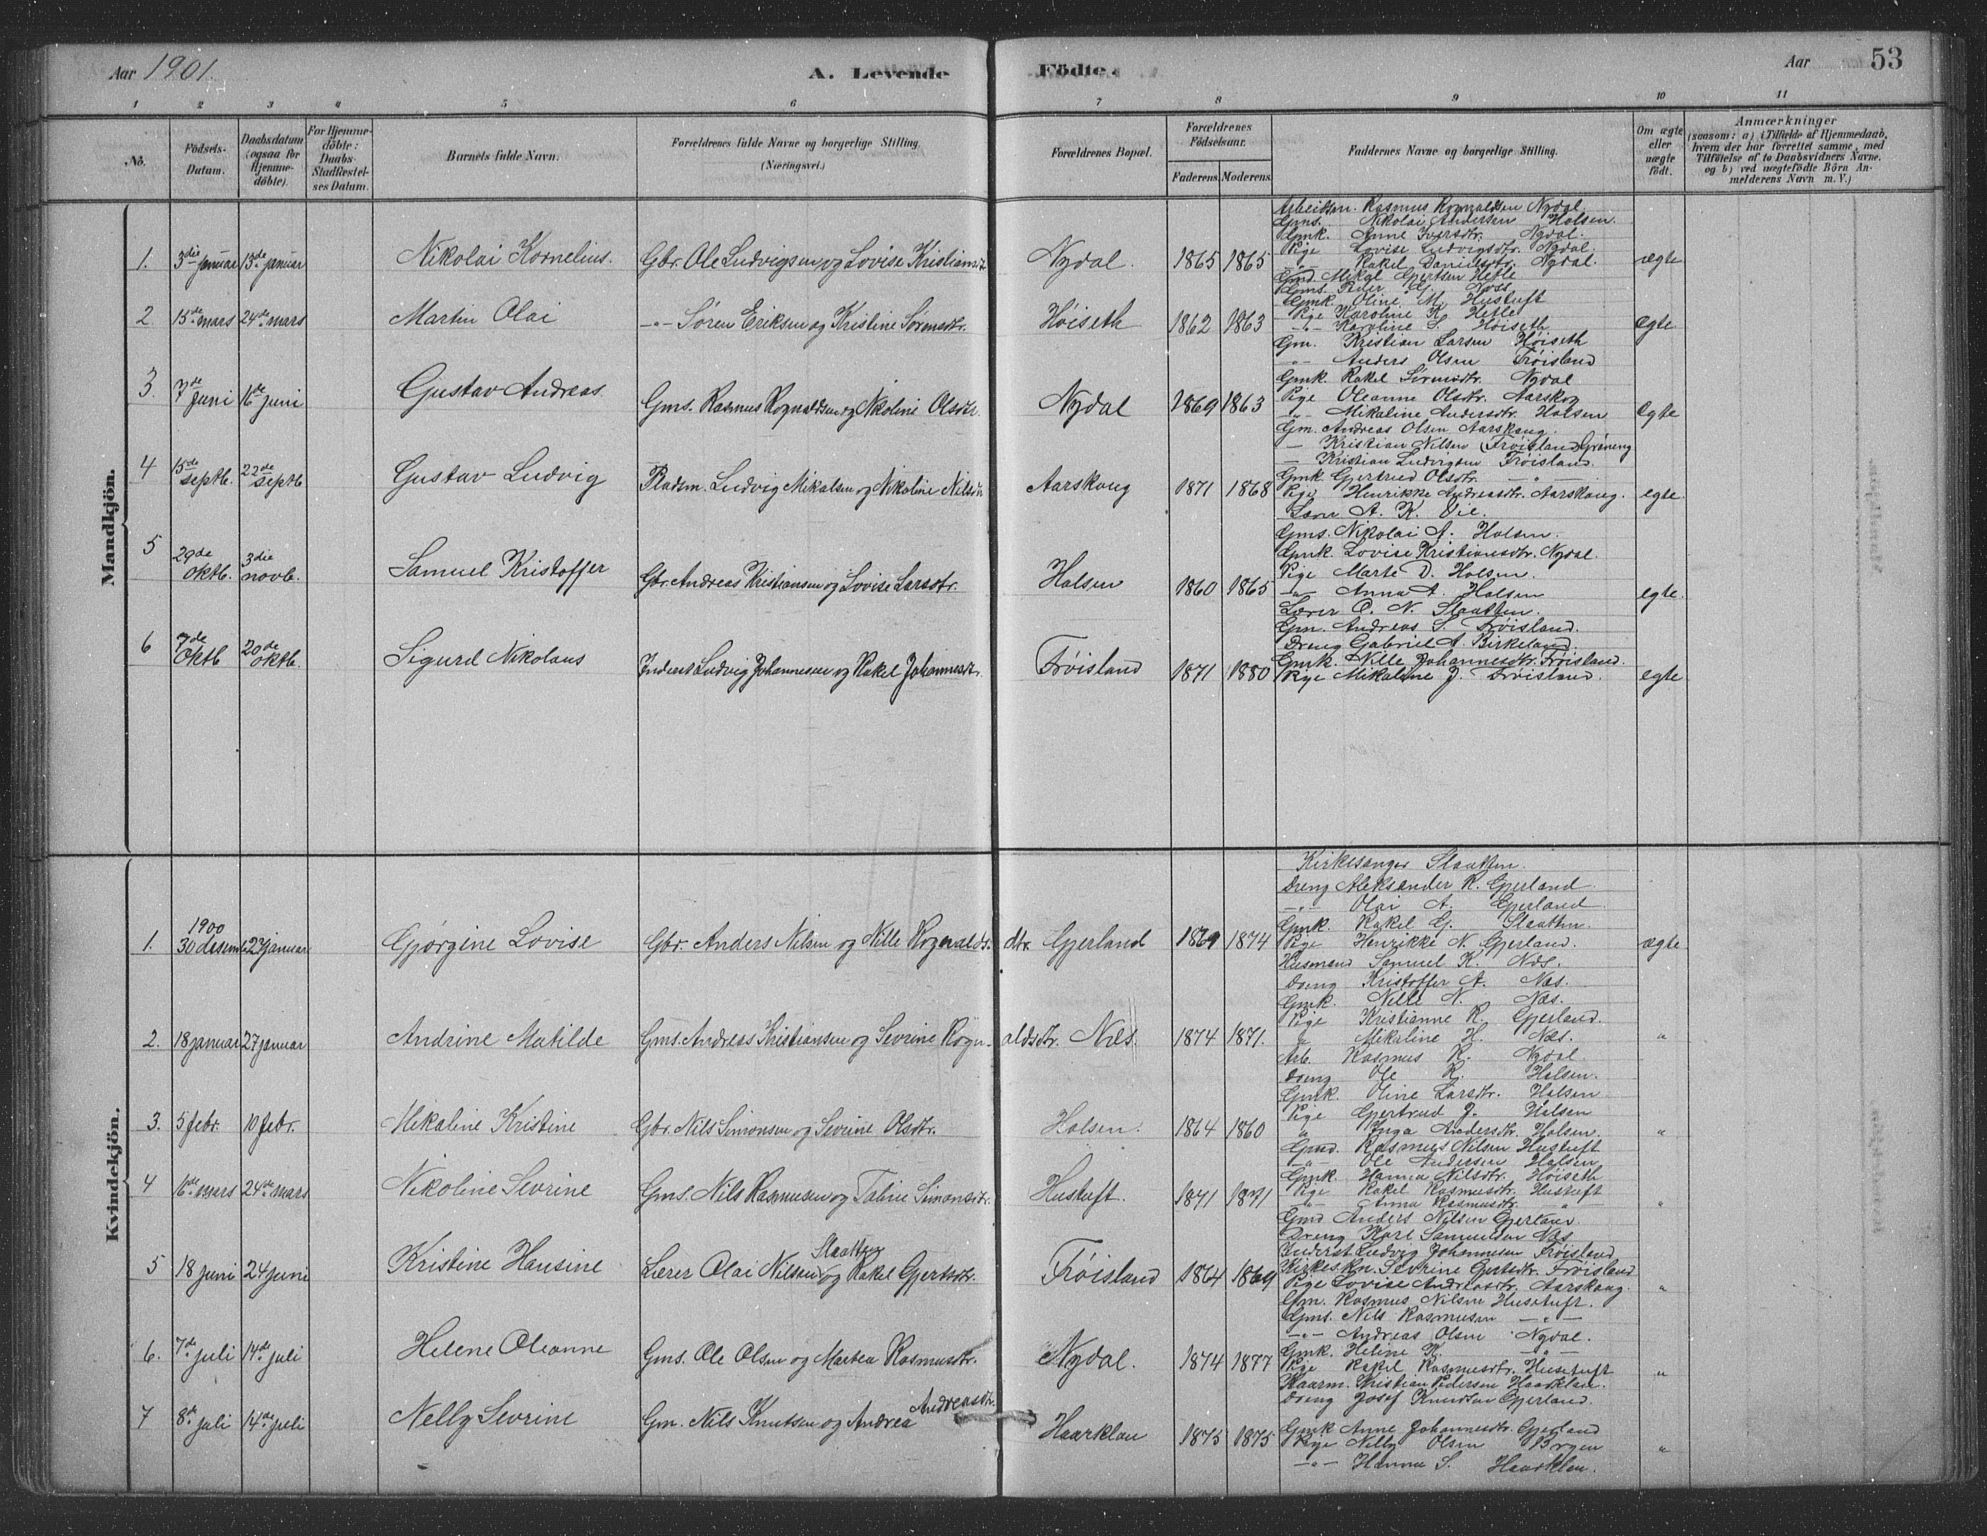 Aar 1901.
A. Levende Födte.
Aar 53
1 2 3 4 5 6 7 8 9 10 11
No.
Födsels-Datum.
Daabsdatum (ogsaa for Hjemmedöbte).
For Hjemmedöbte: Daabs-Stadfæstelses Datum.
Barnets fulde Navn.
Forældrenes fulde Navne og borgerlige Stilling. (Næringsvei.)
Forældrenes Bopæl.
Forældrenes Födselsaar.
Faderens. Moderens.
Faddernes Navne og borgerlige Stilling.
Om ægte eller uægte födt.
Anmærkninger
(saasom: a) i Tilfælde af Hjemmedaab, hvem der har forrettet samme, med Tilföielse af to Daabsvidners Navne, og b) ved uægtefödte Börn Anmelderens Navn m. V.)
Mandkjön.
1. 3die januar 13de januar Nikolai Kornelius. Gbr. Ole Ludvigsen og Lovise Kristiansdtr. Nydal. 1865 1865 ægte
Arbeidsm. Rasmus Rognaldsen Nydal.
Gms. Nikolai Andersen Halsen.
Gmk. Anne Iversdtr. Nydal.
Pige Lovise Ludvigsdtr. Nydal.
" Rakel Danielsdtr. Nydal.
2. 15de mars 24de mars Martin Olai -"- Søren Eriksen og Kristine Sørensdtr. Høiseth 1862 1863 Egte
Gmd. Mikal Gjertsen Hetle
Gms. Peder G. Næss
Gmk. Oline M. Hustuft
Pige Karoline K. Hetle
-"- Karoline S. Høiseth
3 7de juni 16de juni Gustav Andreas Gms. Rasmus Rognaldsen og Nikoline Olsdtr. Nydal 1869 1863 Egte
Gm. Kristian Larsen Høiseth
-"- Anders Olsen Frøisland
Gmk. Rakel Simonsdtr. Nydal
Pige Oleanne Olsdtr. Aarskog
-"- Mikaline Andersdtr. Halsen
4 15de septb. 22de septb Gustav Ludvig Pladsm. Ludvig Mikalsen og Nikoline Nilsdtr Aarskaug 1871 1868 egte
Gm. Andreas Olsen Aarskaug.
- Kristian Nilsen (Frøisland) Grøneng
- Kristian Ludvigsen Frøisland.
Gmk Gjertrud Olsdtr. -"-
Pige Henrikke Andreasdtr. Aarskaug.
5 29de oktb. 3die novb. Samuel Kristoffer Gbr. Andreas Kristiansen og Lovise Larsdtr. Halsen 1860 1865 egte.
Lærer A. K. Vie.
Gms. Nikolai A. Halsen.
Gmk. Lovise Kristiansdtr. Nydal.
Pige Marte D. Halsen.
-"- Anna A. Halsen
6 7de Oktb 20de oktb. Sigurd Nikolaus Inderst Ludvig Johannesen og Rakel Johannesdtr. Frøisland 1871 1880 egte
Lærer O. N. Slaatten.
Gm. Andreas S. Frøisland.
Dreng Gabriel A. Birkeland
Gmk. Nille Johannesdtr. Frøisland.
Pige Mikaline J. Frøisland.
Kvindekjön.
1. 1900 30 desem. 27 januar Gjørgine Lovise Gbr. Anders Nilsen og Nille Rognaldsdtr. Gjerland 1869 1874 ægte
Kirkesanger Slaatten.
Dreng Aleksander R. Gjerland
-"- Olai A. Gjerland
Gmk. Rakel G. Slaatten
Pige Henrikke N. Gjerland.
2. 18 januar 27 januar Andrine Matilde Gms. Andreas Kristiansen og Sevrine Rognaldsdtr. Næs. 1874 1871. "
Husmand Samuel K. Næs.
Dreng Kristoffer A. Næs.
Gmk. Nille N. Næs.
Pige Kristianne R. Gjerland.
" Mikaline H. Næs.
3. 5 febr. 10 febr. Mikaline Kristine Gbr. Nils Simonsen og Sevrine Olsdtr. Halsen. 1864 1860 "
Arb. Rasmus R. Nydal
Dreng Ole R. Halsen.
Gmk. Oline Larsdtr. Halsen
Pige Gjertrud J. Halsen
" Inga Andersdtr. Halsen.
4 16de mars 24de mars Nikoline Sevrine Gms. Nils Rasmusen og Taline Simonsdtr. Hustuft. 1871 1871 "
Gmd. Rasmus Nilsen Hustuft
-"- Ole Andersen Halsen
Gmk. Hanna Nilsdtr. Høiseth
Pige Rakel Rasmusdtr. Hustuft
-"- Anna Rasmusdtr. -"-
5 18 juni 24 juni Kristine Hansine Lærer Olai Nilsen Slaatten og Rakel Gjertsdtr. Frøisland 1864 1869 "
Gmd Anders Nilsen Gjerland.
Dreng Karl Samuelsen Næs
Inderst Ludvig Johannesen Frøisland
Kirkeskn. Sevrine Gjertsdtr. Frøisland
Pige Lovise Andreasdtr. Aarskaug.
6. 7de juli 14de juli Helene Oleanne Gms. Ole Olsen og Martea Rasmusdtr. Nydal. 1874 1877 "
Gm. Rasmus Nilsen Husetuft.
Gms. Nils Rasmusen -"-
-"- Andreas Olsen Nydal.
Gmk. Heline K. -"-
Pige Rakel Rasmusdtr. Husetuft
7 8de juli 14de juli Nelly Sevrine Gm. Nils Knutsen og Andrea Andreasdtr. Haarklau 1875 1875 "
Kaarm. Kristian Pedersen Haarklau.
Dreng Josef Knudsen Gjerland.
Gmk Anne Johannesdtr. Gjerland
Pige Nelly Olsen Brgen
-"- Hanna S. Haarklau.